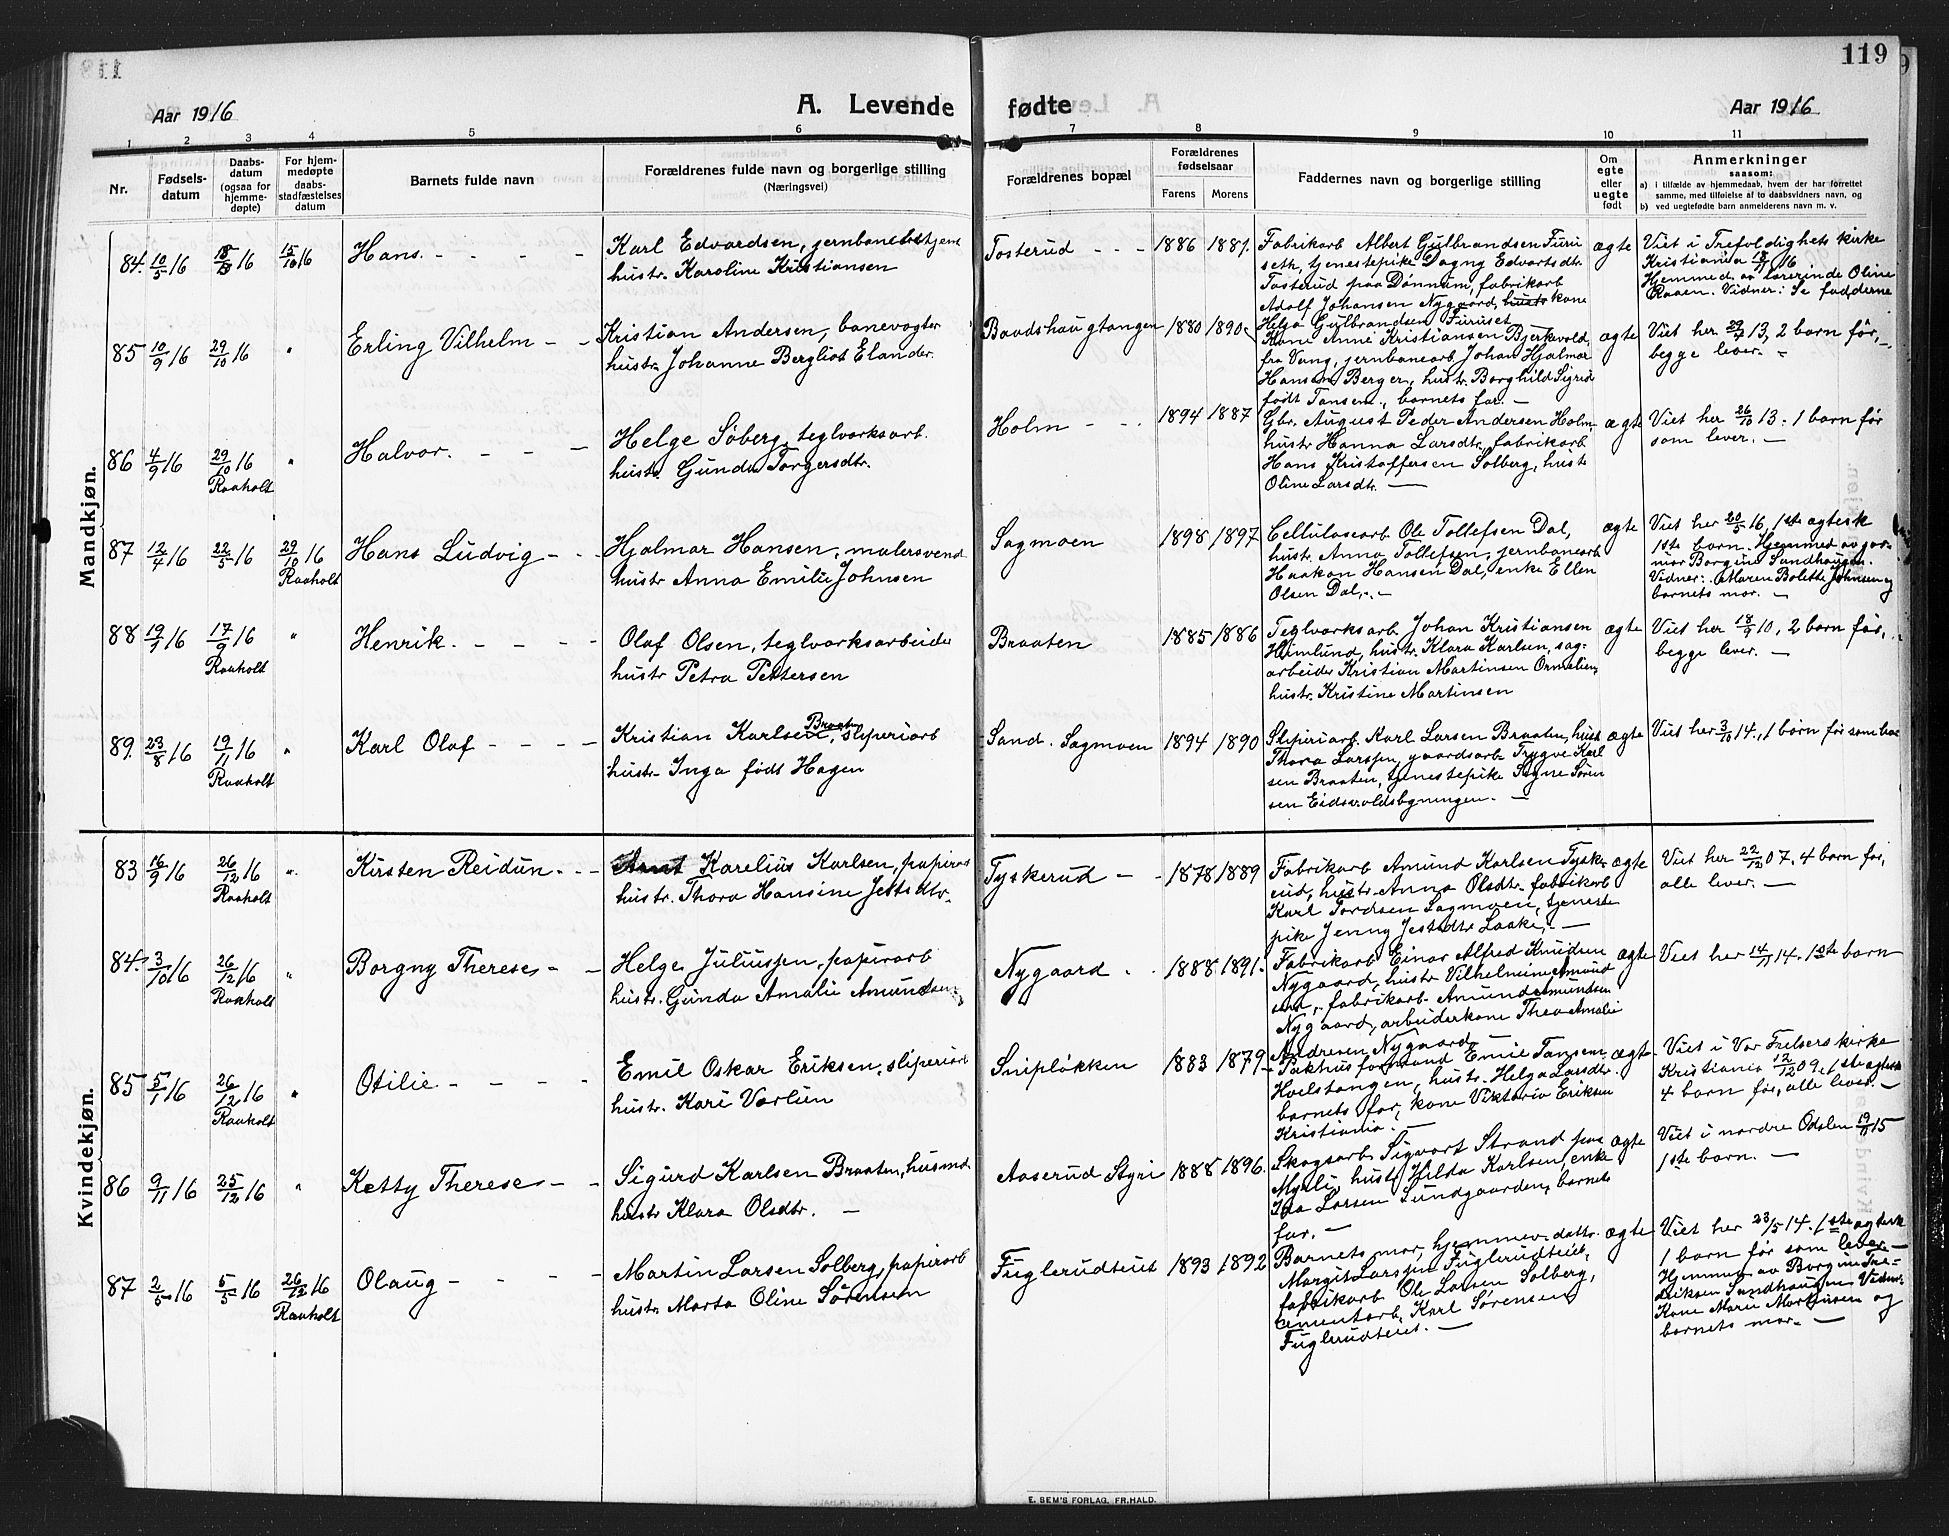 119
Aar 1916
A. Levende fødte
Aar 1916
1 2 3 4 5 6 7 8 9 10 11
Nr.
Fødsels-
datum
Daabs-
datum
(ogsaa for
hjemme-
døpte)
For hjem-
medøpte
daabs-
stadfæstelses
datum
Barnets fulde navn
Forældrenes fulde navn og borgerlige stilling
(Næringsvei)
Forældrenes bopæl
Forældrenes
fødselsaar
Farens Morens
Faddernes navn og borgerlige stilling
Om
egte
eller
uegte
født
Anmerkninger
saasom:
a) i tilfælde av hjemmedaab, hvem der har forrettet
samme, med tilføielse af to daabsvidners navn, og
b) ved uegtefødte barn anmelderens navn m. v.
Mandkjøn.
84. 10/5 16
15/10 16
Hans.
Karl Edvardsen, jernbanebetjent
hustr. Karoline Kristiansen
Tosterud
1886 1881.
Fabrikarb Albert Gulbrandsen Furu
seth, tjenestepike Dagny Edvartsdtr.
Tosterud paa Dønnum, fabrikarb
Adolf Johansen Nygaard, kone
Helga Gulbrandsen Furuset
ægte
Viet i Trefoldighets kirke
Kristiania
Hjemmed. av lærerinde Oline
Raaen. Vidner: Se fadderne
85 10/9 16 29/10 16 "
Erling Vilhelm
Kristian Andersen, banevogter
hustr. Johanne Bergliot Elander.
Baadshaugtangen
1880 1890
Kone Anne Kristiansen Bjerkvold
fra Vang, jernbanearb. Johan Hjalmar
Hansen Berger, hustr. Borghild Sigrid
født Jansen, barnets far.
ægte
Viet her 29/7 13, 2 barn før,
begge lever.
86 4/9 16 29/10 16 "
Raaholt
Halvor.
Helge Søberg, teglverksarb.
hustr. Gunda Torgersdtr.
Holm
1894 1887
Gbr. August Peder Andersen Holm
hustr Hanna Larsdtr, fabrikarb
Hans Kristoffersen Solberg, hustr
Oline Larsdtr.
ægte
Viet her 26/10 13. 1 barn før
som lever.
87 12/4 16 22/5 16 29/10 16
Raaholt
Hans Ludvig
Hjalmar Hansen, malersvend
hustr Anna Emilie Johnsen
Sagmoen
1898 1897
Cellulosearb Ole Tollefsen Dal,
hustr. Anna Tollefsen, jernbanearb
Haakon Hansen Dal, enke Ellen
Olsen Dal,
ægte
Viet her 20/5 16, 1ste egtesk
1ste barn. Hjemmed av jor-
mor Borgine Sandhaugen.
Vidner: Maren Bolette Johnsen og
barnets mor.
88 19/7 16 17/9 16 "
Raaholt
Henrik.
Olaf Olsen, teglverksarbeider
hustr Petra Pettersen
Braaten
1885 1886
Teglverksarb Johan Kristiansen
Heimlund, hustr. Klara Karlsen, sag-
arbeider Kristian Martinsen Ormalien,
hustr. Kristine Martinsen
ægte
Viet her 18/9 10, 2 barn før,
begge lever.
89. 23/8 16 19/11 16 "
Raaholt
Karl Olaf
Kristian Karlsen Braaten, sliperiarb
hustr. Inga født Hagen
Sand. Sagmoen
1894 1890
Sliperiarb. Karl Larsen Braaten, hustr
Thora Larssen, gaardsarb. Trygve Karl
sen Braaten, tjenestepike Signe Søren
sen Eidsvoldsbygningen.
ægte
Viet her 3/10 14, 1 barn før som
Kvindekjøn.
83 16/9 16 26/12 16 "
Raaholt
Kirsten Reidun
Karelius Karlsen, papirarb
hustr. Thora Hansine
Tyskerud
1878 1889
Fabrikarb Amund Karlsen Tysk-
rud, hustr. Anna Olsdtr. fabrikarb
Karl Tordsen Sagmoen, tjeneste
pike Jenny Laake,
ægte
Viet her 22/12 07. 4 barn før,
alle lever.
84. 3/10 16 26/12 16 "
Raaholt
Borgny Therese
Helge Juliussen, papirarb
hustr. Gunda Amalie Amundsen
Nygaard
1888 1891.
Fabrikarb Einar Alfred Knudsen
Nygaard, hustr Vilhelmine Amund
sen, fabrikarb Amund Amundsen
Nygaard, arbeiderkone Thea Amalie
Andresen Nygaard
ægte
Viet her 14/11 14. 1ste barn
85 5/1 16 26/12 16 "
Raaholt
Otilie
Emil Oskar Eriksen, sliperiarb
hustr. Kari Vorlien
Snipløkken
1883 1879
Pakhusformand Emil Jansen
Hvelstangen, hustr. Helga Larsdtr.
barnets far, kone Viktoria Eriksen
Kristiania.
ægte
Viet i Vor Frelsers kirke
Kristiania 12/12 09, 1ste egtesk
4 barn før, alle lever.
86 9/11 16 25/12 16 "
Ketty Therese
Sigurd Karlsen Braaten, husmd.
hustr Klara Olsdtr.
Aaserud Styri
1888 1896.
Skogsarb Sigvart Strand paa
Myrli, hustr. Hilda Karlsen, enke
Ida Larsen Sundgaarden, barnets
far.
ægte
Viet i nordre Odalen 15
1ste barn.
87 2/5 16 5/5 16 26/12 16
Raaholt
Olaug
Martin Larsen Solberg, papirarb
hustr. Marta Oline Sørensen
Fuglerudteiet
1893 1892
Barnets mor, hjemmev. datter
Margit Larssen Fuglerudteiet,
fabrikarb Ole Larsen Solberg,
cementarb. Karl Sørensen
Fuglerudteiet.
ægte
Viet her 23/5 14. 1ste egtesk
1 barn før som lever.
Hjemmed av Borgine
Eriksen Sandhaugen Vidner
Kone Marie og
barnets mor.
E. SEM'S FORLAG, FR.HALD.